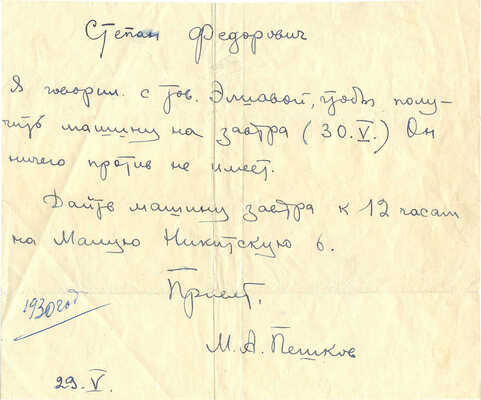 Степан Федорович
Я говорил. с тов. Элиавой, чтобы полу-
чить машину на завтра (30.V.) Он
ничего против не имеет.
Дайте машину завтра к 12 часам
на Малую Никитскую 6.
Привет.
1930 год
М. А. Пешков
29.V.